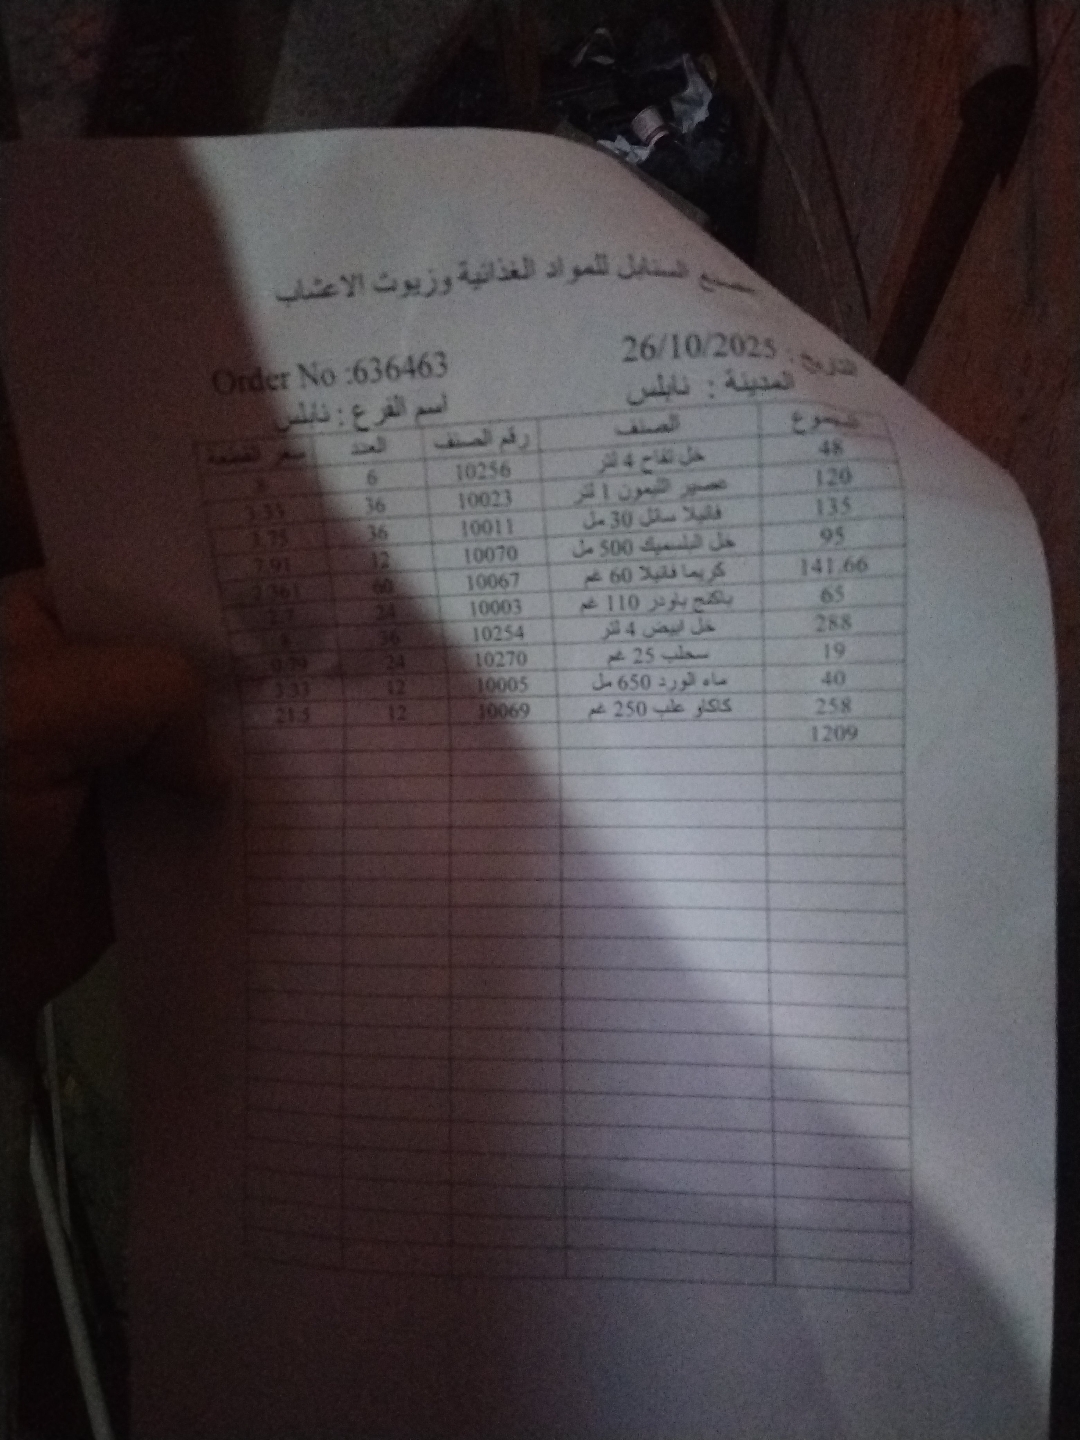 مصنع السنابل للمواد الغذائية وزيوت الاعشاب
التاريخ : 26/10/2025 Order No :636463
المدينة : نابلس اسم الفرع : نابلس
المجموع الصنف رقم الصنف العدد سعر القطعة
48 خل تفاح 4 لتر 10256 6 8
120 عصير الليمون 1 لتر 10023 36 3.33
135 فانيلا سائل 30 مل 10011 36 3.75
95 خل البلسميك 500 مل 10070 12 7.91
141.66 كريما فانيلا 60 غم 10067 60 2.361
65 باكنج باودر 110 غم 10003 24 2.7
288 خل ابيض 4 لتر 10254 36 8
19 سحلب 25 غم 10270 24 0.79
40 ماء الورد 650 مل 10005 12 3.33
258 كاكاو علب 250 غم 10069 12 21.5
1209